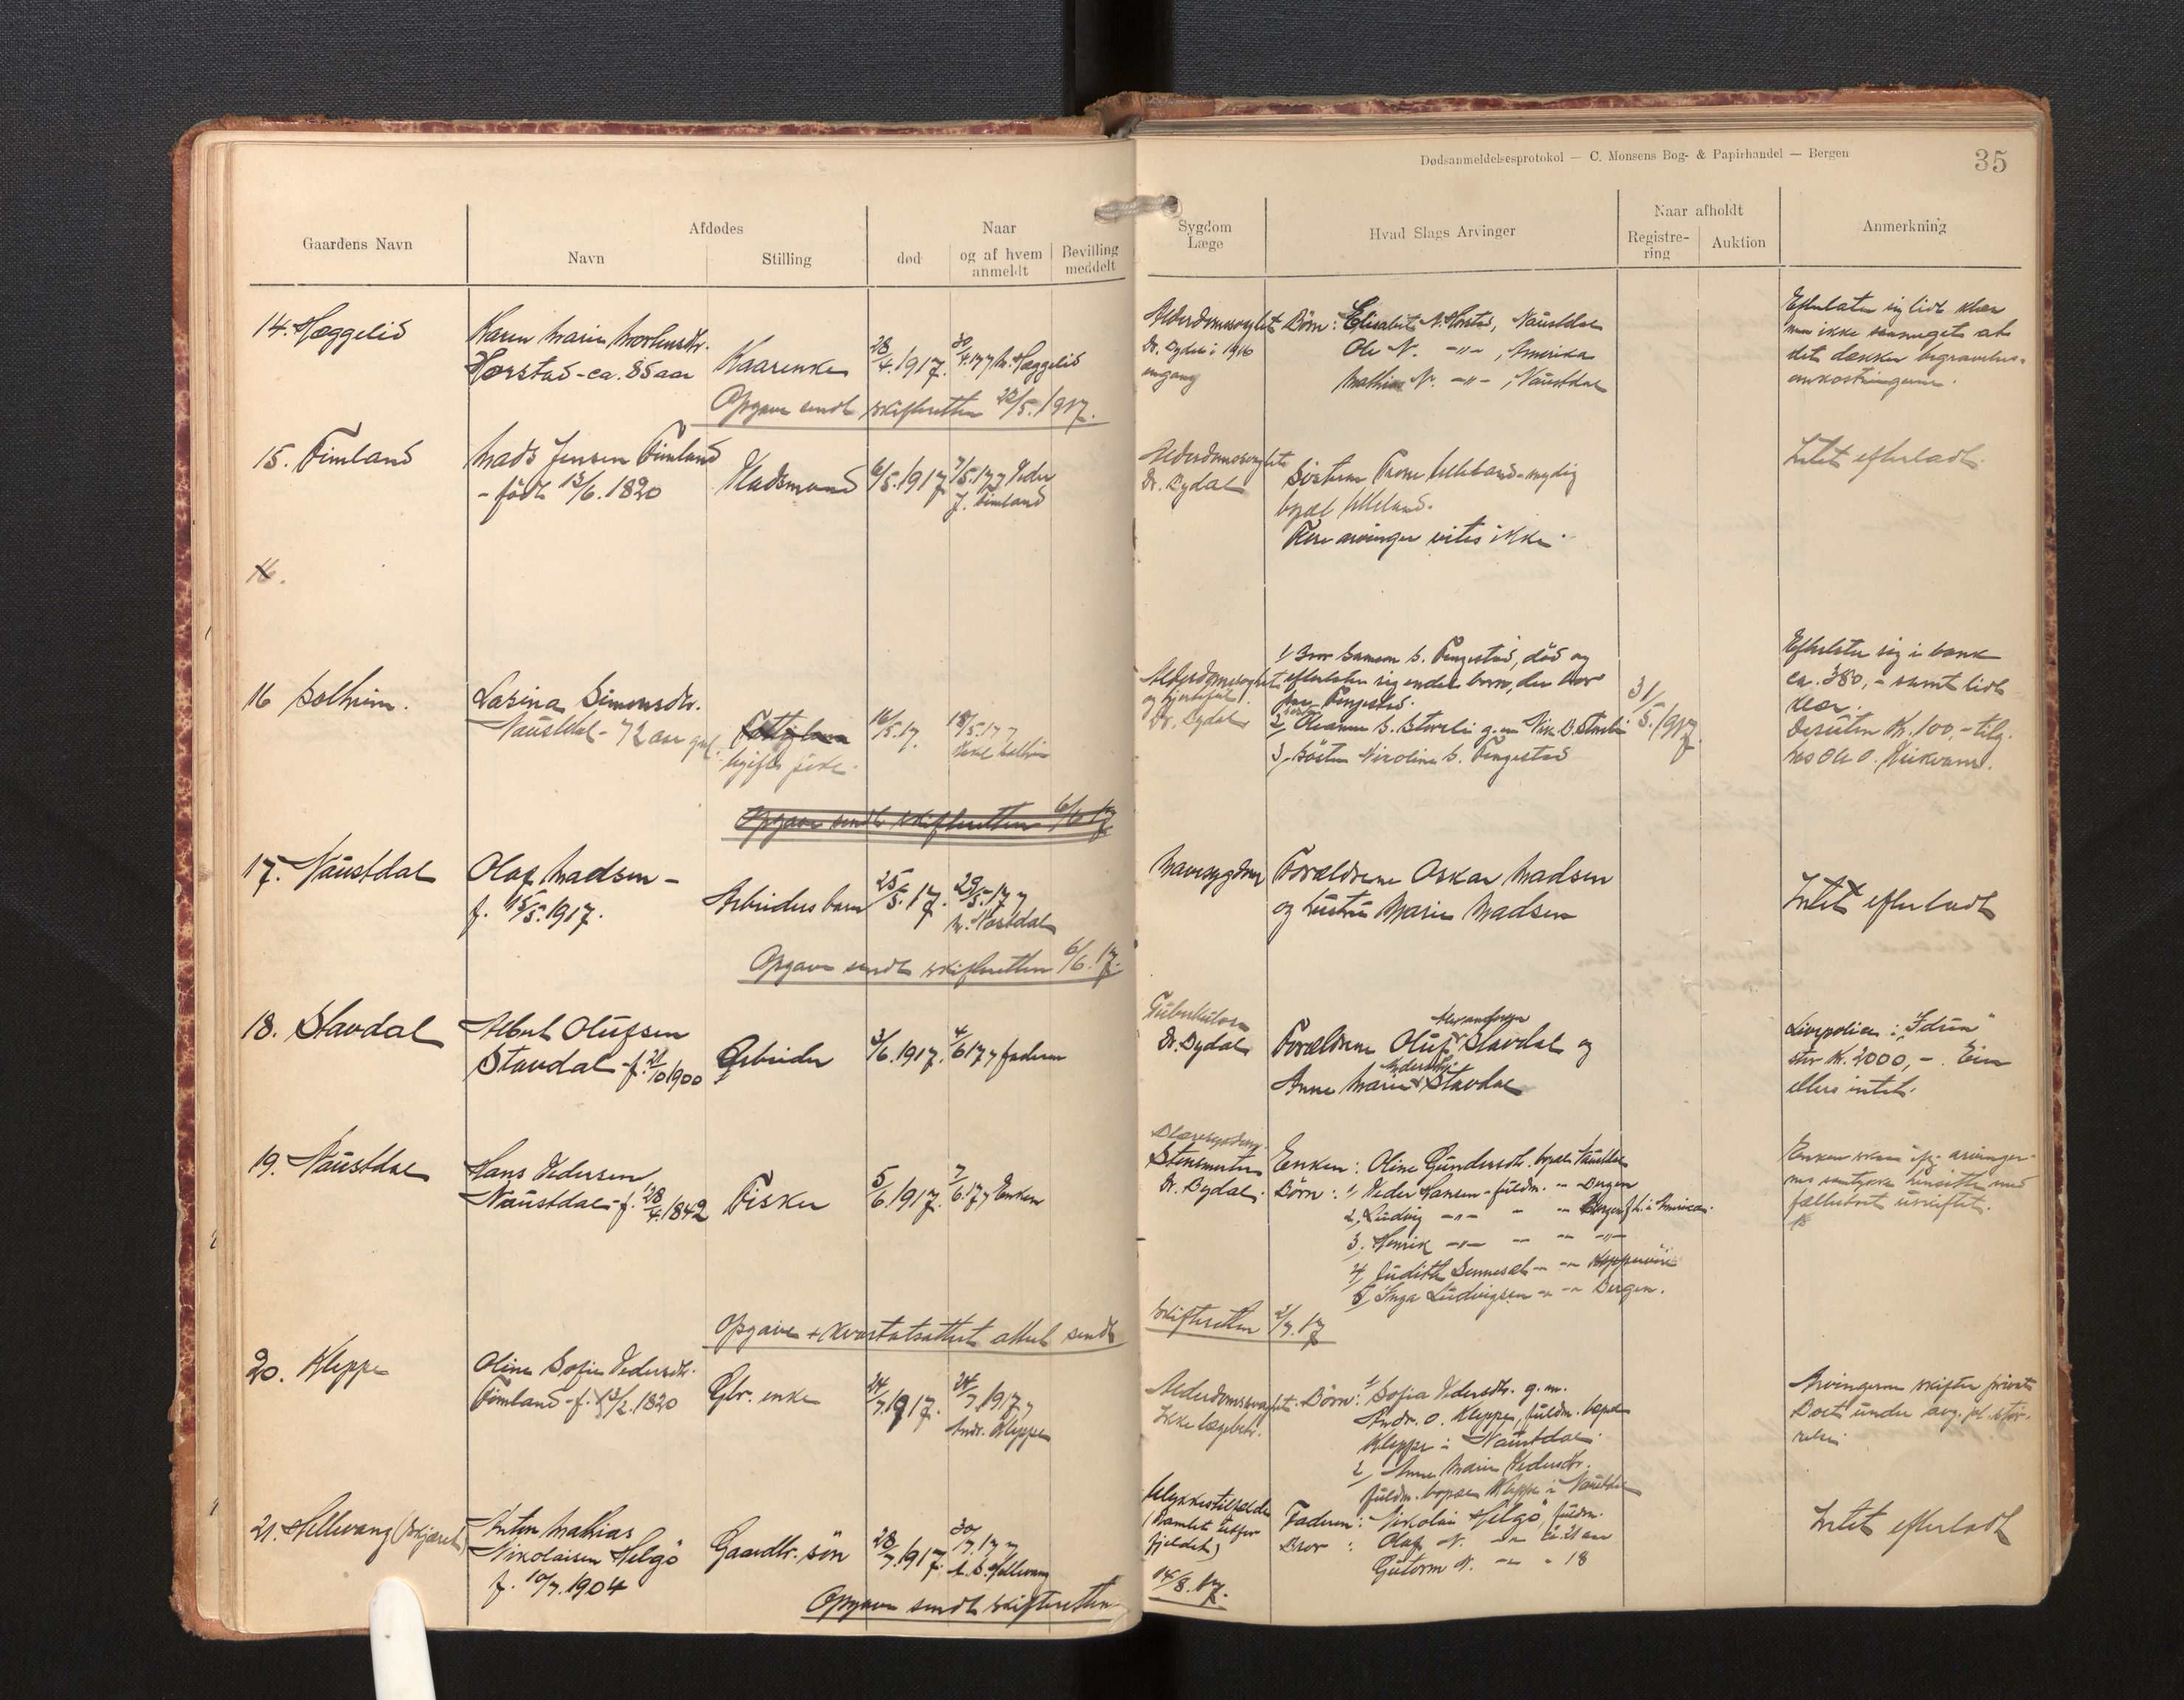 Dødsanmeldelsesprotokol — C. Monsens Bog- & Papirhandel — Bergen
35
Gaardens Navn
Afdødes
Navn
Stilling
Naar
død
og af hvem anmeldt
Bevilling meddelt
Sygdom
Læge
Hvad Slags Arvinger
Naar afholdt
Registre-
ring
Auktion
Anmerkning
14. Hæggelid
Karen Marie
Horstad - ca. 85 aar
Kaarenke
28/4.1917.
30/4.17 Hæggelid
Alderdomssvaghet
Dr. Dydal i 1916
engang
Børn: Elisabet N. Horstad, Naustdal
Ole N. -"- , Amerika
Mathias N. -"- , Naustdal
Efterlater sig lidt klær
men ikke saameget at
det dækker begravelses-
omkostningerne.
Opgave sendt skifteretten 22/5.1917.
15. Fimland
Mads Jensen Fimland
- født 13/6.1820
Pladsmand
6/5.1917
7/5.17 Peder
J. Fimland
Alderdomssvaghet
Dr. Dydal
Søsteren Helleland - myndig
bopæl Helleland.
Flere arvinger vites ikke.
Intet efterladt.
16.
16 Solheim.
Lasina Simonsdtr.
Naustdal - 72 aar gml.
ugift pike.
16/5.17.
18/5.17
Solheim
Alderdomssvaghet
Dr. Dydal
1/ Bror Samson S. Fungestad, død og
efterlater sig endel børn, den
Fungestad.
2/ Oleanna S. Storeli g. m. Storeli
3/ Søster Nikoline S. Fungestad
31/5.1917
Efterlater sig i bank
ca. 380,- samt lidt
klær.
Desuten Kr. 100,- tilg.
hos Ole O.
Opgave sendt skifteretten 6/6 17
17. Naustdal
Olaf Madsen -
f. 15/5.1917.
Arbeiders barn
25/5.17.
29/5.17
M. Naustdal
Mavesygdom
Forældrene Oskar Madsen
og hustru Marie Madsen
Intet efterladt
Opgave sendt skifteretten 6/6.17.
18. Stavdal
Albert Olufsen
Stavdal - f. 21/10 1900
Arbeider
3/6.1917.
4/6 17 faderen
Tuberkulose
Dr. Dydal
Forældrene Oluf Stavdal og
Anne Marie Stavdal
Livspolice i "Idun"
stor Kr. 2000,-. Eier
ellers intet.
19. Naustdal
Hans Pedersen
Naustdal - f. 28/4.1842
Fisker
5/6.1917.
7/6.17 Enken
Stensmerter
Dr. Dydal.
Enken: Oline Gundersdtr. bopæl Naustdal
Børn: 1/ Peder Hansen - fuldm. -"- Bergen
2/ Ludvig -"- - -"- i Amerika.
3. Henrik -"- -"- -"-
4/ Judith -"- -"-
5/ Inga Ludvigsen -"- -"- Bergen.
Enken arvinger-
nes samtykke hensitte med
fællesboet uskiftet.
Opgave + attest sendt
skifteretten 2/7.17
20. Kleppe
Oline Sofie Pedersdtr.
Fimland - f. 13/2.1820
Gbr. enke
24/7.1917.
24/7.1917
Andr. Kleppe
Alderdomssvaghet.
Ikke lægebeh.
Børn: 1/ Sofia Pedersdtr. g. m.
Andr. O. Kleppe, fuldm. bopæl
Kleppe i Naustdal.
2/ Anne Marie Pedersdtr.
fuldm. bopæl Kleppe i Naustdal
Arvingerne skifter privat
Boet under avg. pl. stør-
relse
21. Hellevang (Skjæret)
Anton Mathias
Nikolaisen Helgø
f. 10/7.1904
Gaardbr. søn
28/7.1917.
30/7.17
Hellevang
Ulykkestilfælde
(Ramlet utfor
fjeldet)
Faderen: Nikolai Helgø, fuldm.
Bror : Olaf N. -"- ca. 21 aar
Gutorm N. -"- " 18
Intet efterladt
Opgave sendt skifteretten
14/8.17.